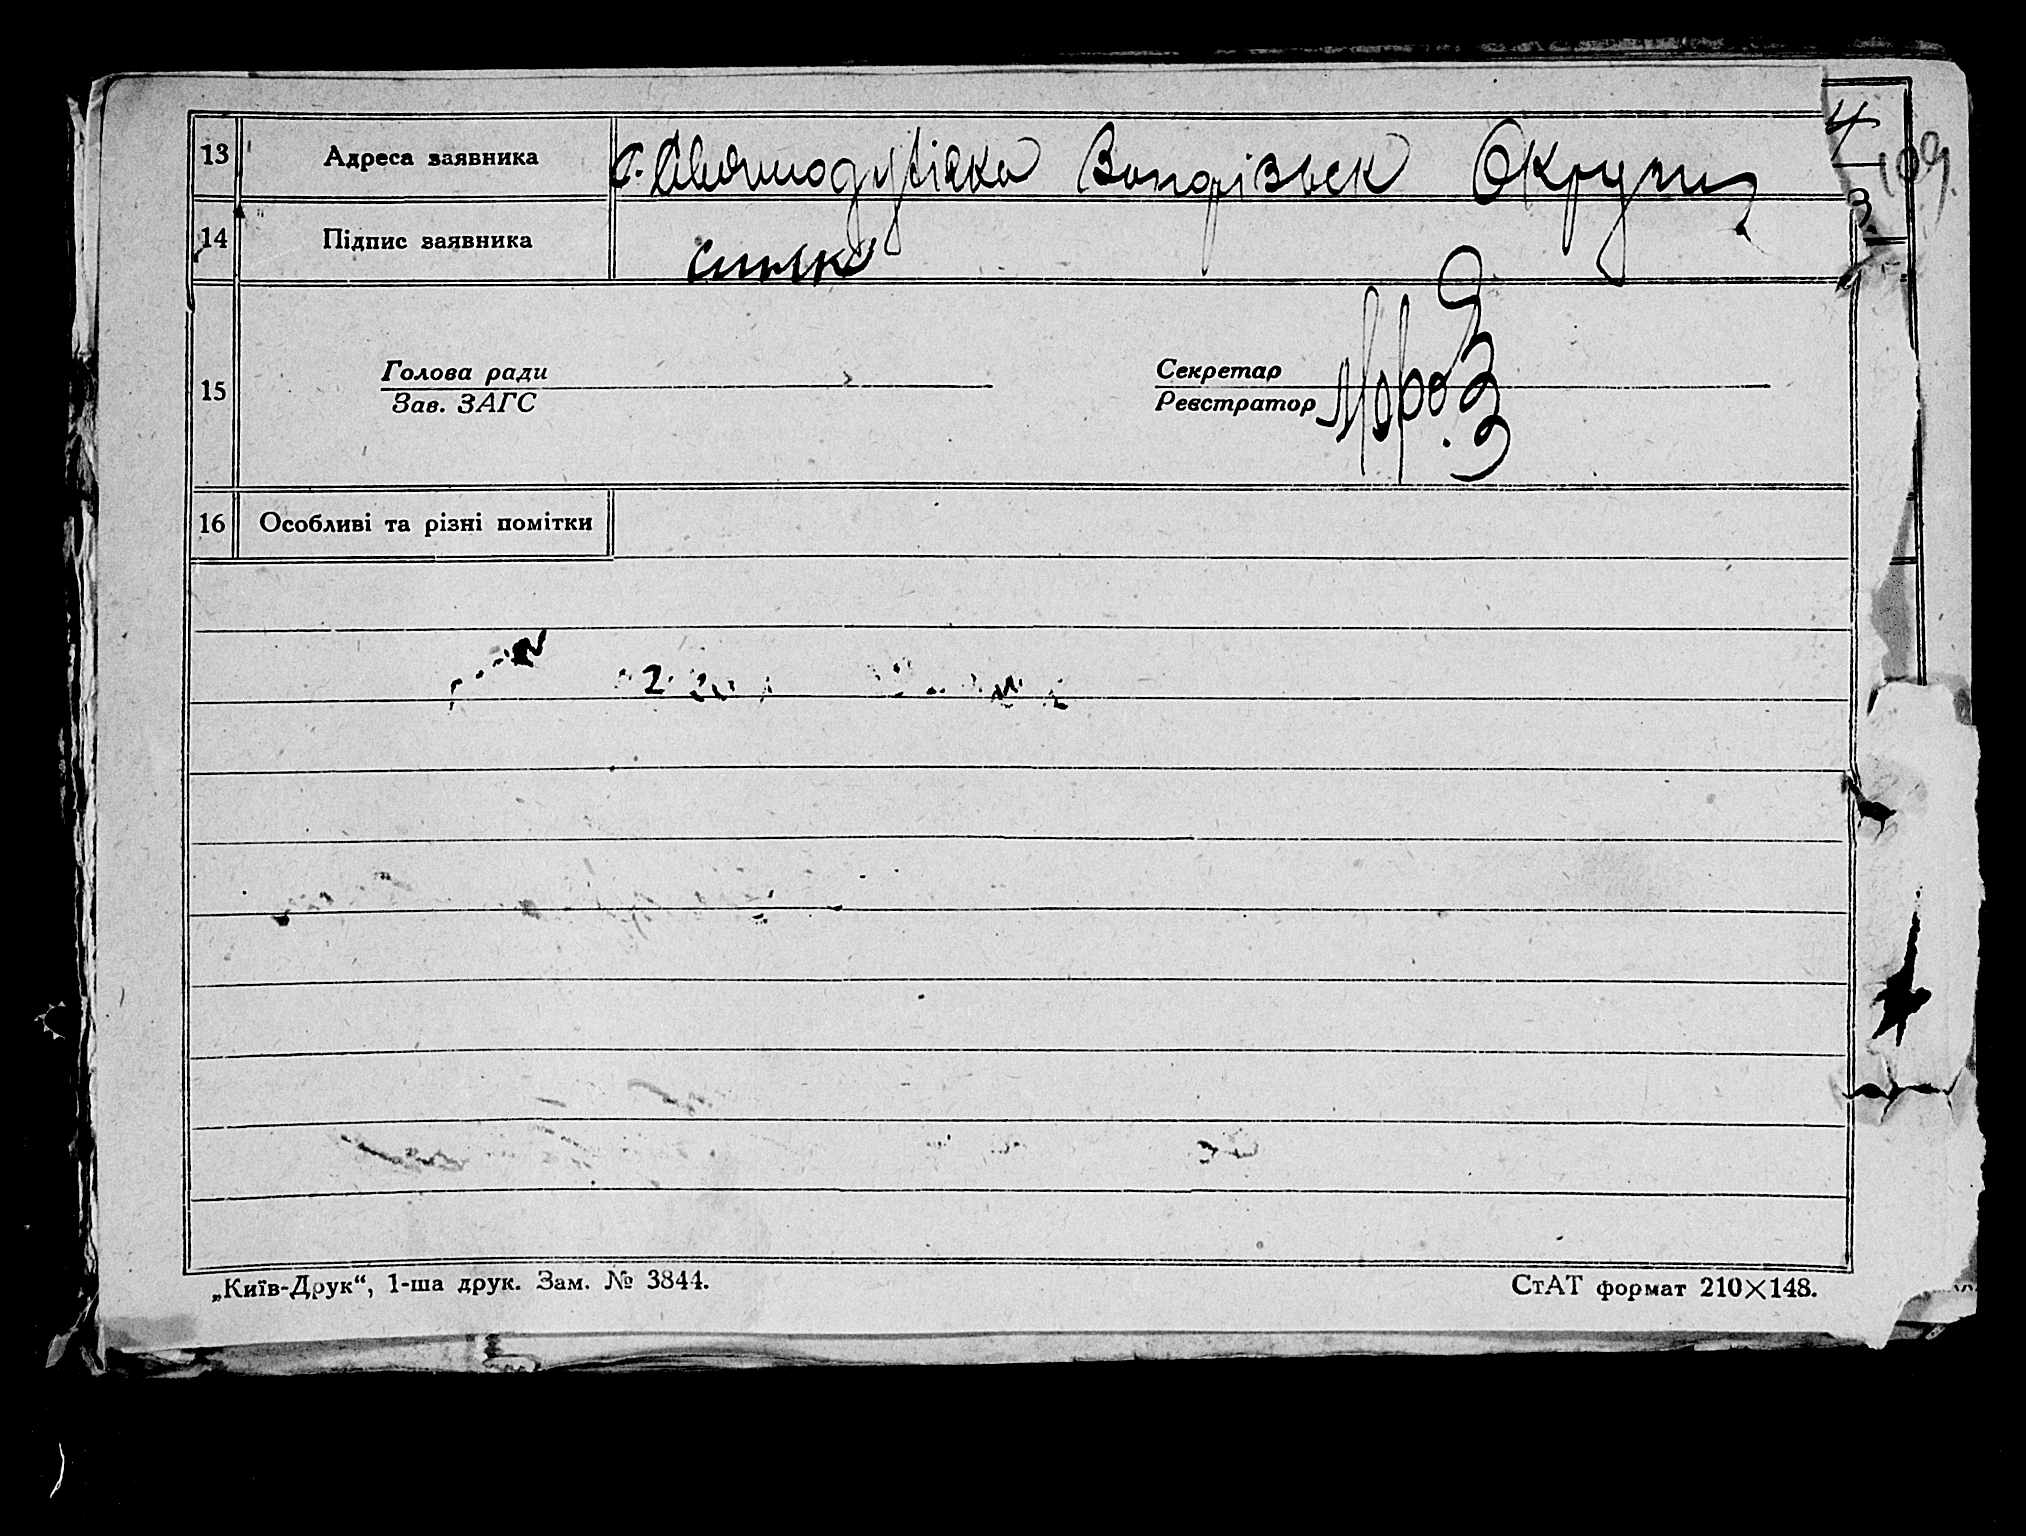 13 Адреса заявника с. Святодухівка Запорізьск Округи
14 Підпис заявника
15 Голова ради Секретар
Зав. ЗАГС Реєстратор Мороз
16 Особливі та різні помітки
109
„Київ-Друк“, 1-ша друк. Зам. № 3844. СтАТ формат 210×148.